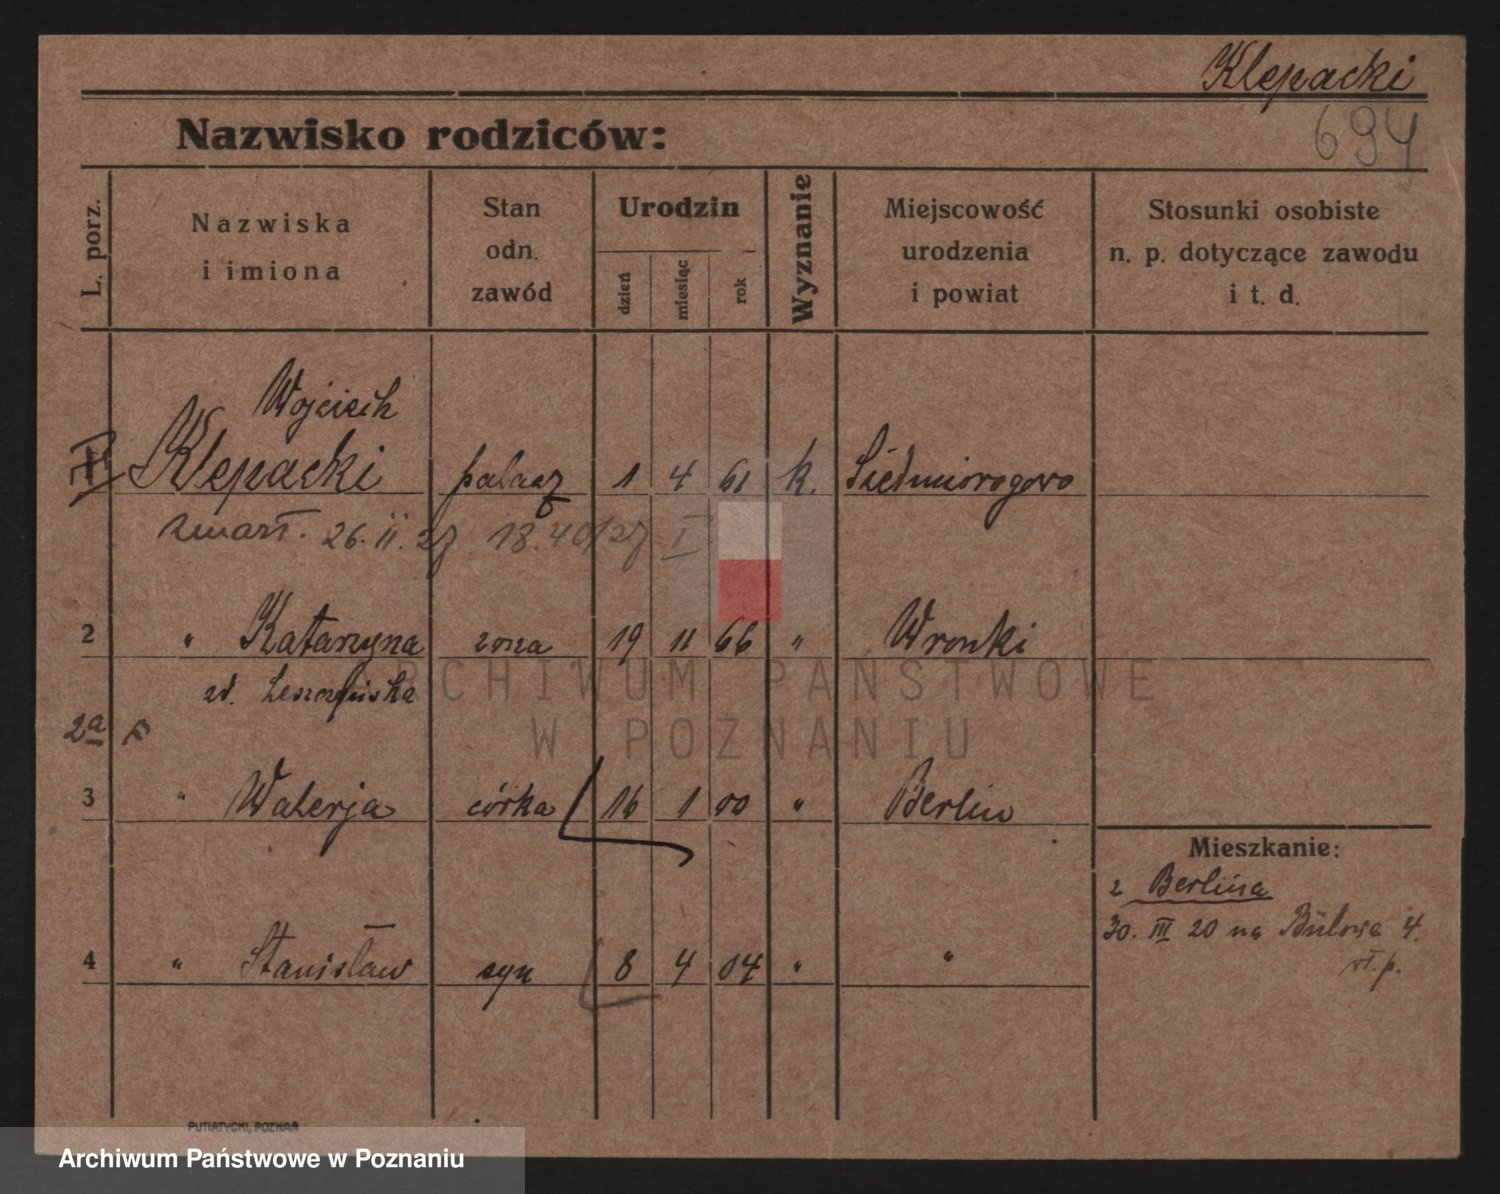 Klepacki
694
Nazwisko rodziców:
L. porz.
Nazwiska
i imiona
Stan
odn.
zawód
Urodzin
dzień
miesiąc
rok
Wyznanie
Miejscowość
urodzenia
i powiat
Stosunki osobiste
n. p. dotyczące zawodu
i t. d.
Wojciech
Klepacki palacz 1 4 61 k. Siedmiorogowo
zmarł. 26. II. 27 18.40/27 I
2 " Katarzyna żona 19 11 66 " Wronki
2a
3 " Walerja córka 16 1 00 " Berlin
Mieszkanie:
z Berlina
30. III 20 na Bülowa 4.
4 " Stanisław syn 8 4 04 " "
PUTIATYCKI, POZNAŃ
ARCHIWUM PAŃSTWOWE
W POZNANIU
Archiwum Państwowe w Poznaniu